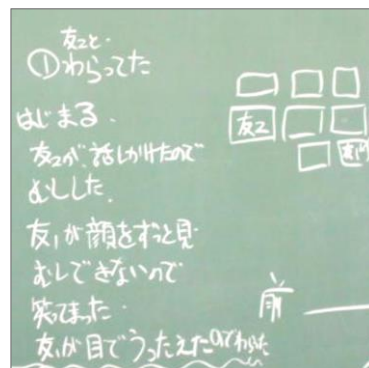 友2と
①わらってた
はじまる。
友2が、話しかけたので
むしした。
友1が顔をずっと見
むしできないので
笑てまった。
友1が目でうったえたのでわらった
友2
前